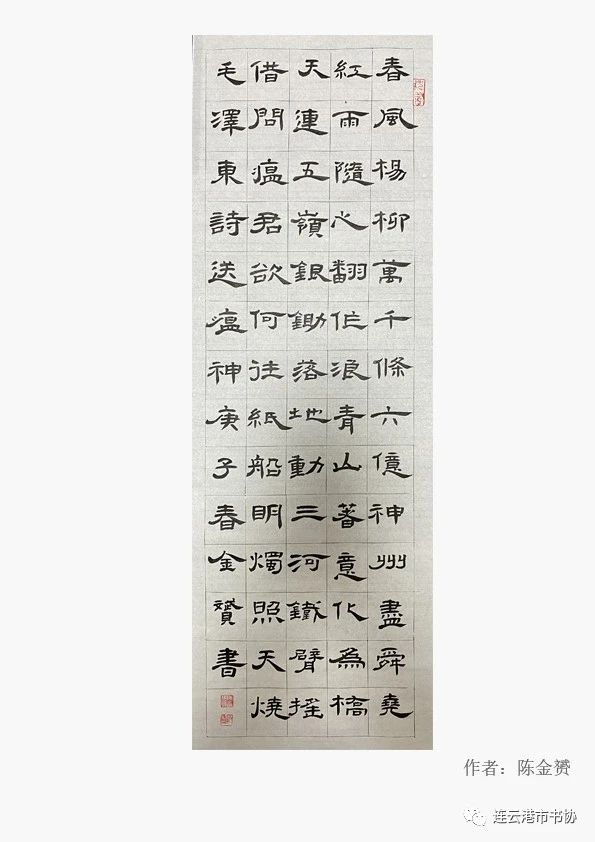 春風楊柳萬千條六億神州盡舜堯
紅雨隨心翻作浪青山著意化為橋
天連五嶺銀鋤落地動三河鐵臂搖
借問瘟君欲何往紙船明燭照天燒
毛澤東詩送瘟神庚子春金贇書
作者：陈金赟
连云港市书协